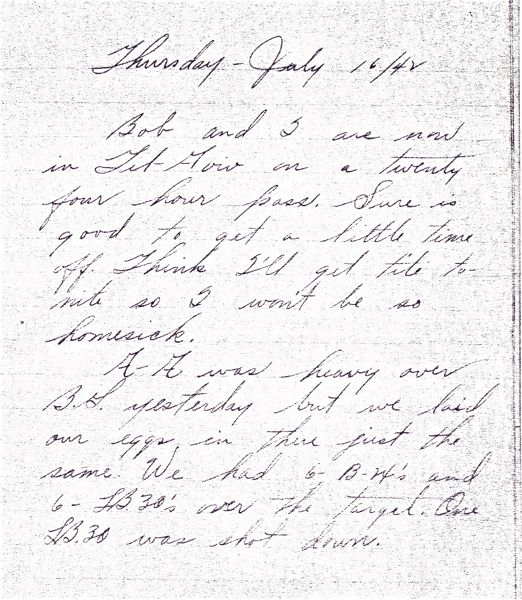 Thursday - July 16/42
Bob and I are now
in Tel-Aviv on a twenty
four hour pass. Sure is
good to get a little time
off. Think I'll get tite to-
nite so I won't be so
homesick.
A-A was heavy over
B.G. yesterday but we laid
our eggs in there just the
same. We had 6- B-24's and
6- LB.30's over the target. One
LB.30 was shot down.